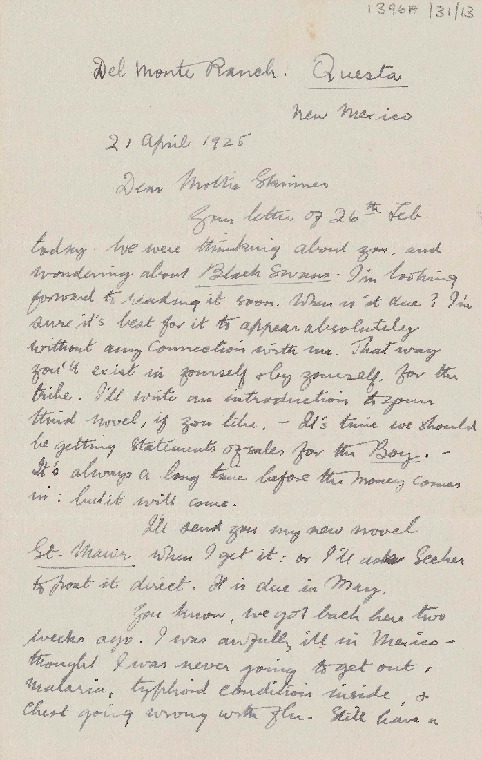 1396A /31/13
Del Monte Ranch. Questa
New Mexico
21 April 1925
Dear Mollie Skinner
Your letter of 26th Feb
today. We were thinking about you, and
wondering about Black Swans. I'm looking
forward to reading it soon. When is it due? I'm
sure it's best for it to appear absolutely
without any connection with me. That way
you'll exist in yourself & by yourself, for the
tribe. I'll write an introduction to your
third novel, if you like. - It's time we should
be getting statements of sales for the Boy. -
It's always a long time before the money comes
in: but it will come.
I'll send you my new novel
St. Mawr when I get it: or I'll ask Secker
to post it direct. It is due in May.
You know, we got back here two
weeks ago. I was awfully ill in Mexico -
thought I was never going to get out,
malaria, typhoid condition inside, &
chest going wrong with flu. Still have a